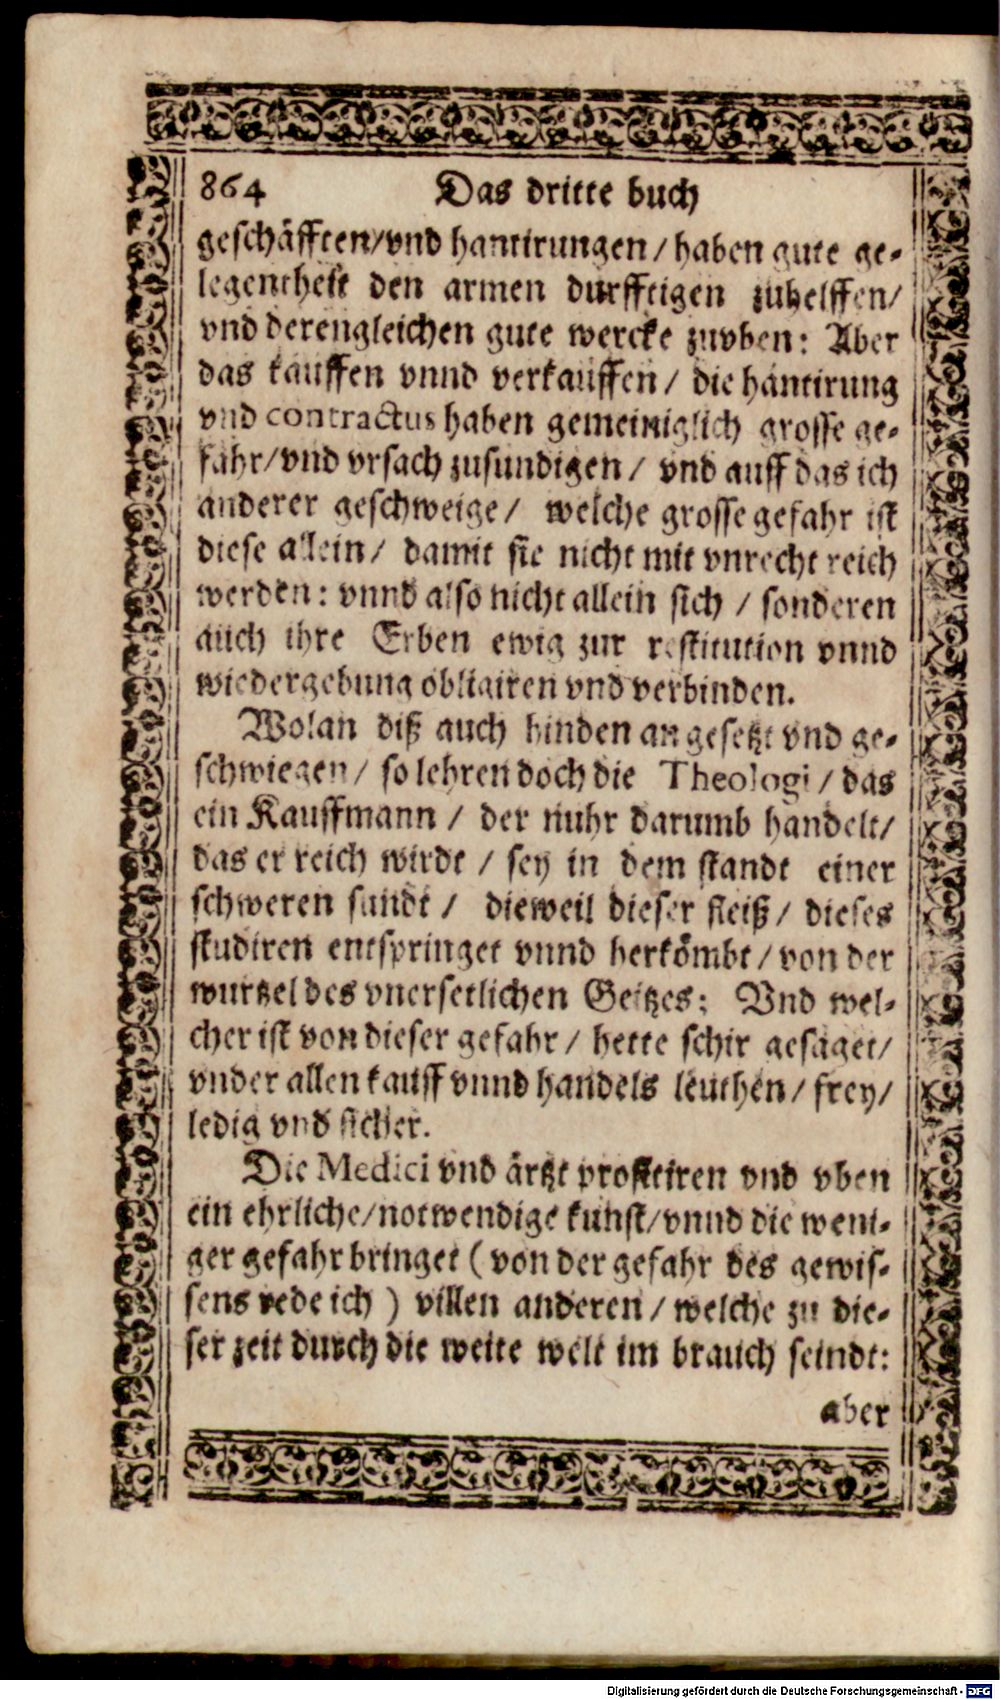 864 Das dritte buch
geschäfften/vnd hantirungen/haben gute ge-
legentheit den armen durfftigen zuhelffen/
vnd derengleichen gute wercke zuvben: Aber
das kauffen vnnd verkauffen/ die hantirung
vnd contractus haben gemeiniglich grosse ge-
fahr/vnd vrsach zusundigen/ vnd auff das ich
anderer geschweige/ welche grosse gefahr ist
diese allein/ damit sie nicht mit vnrecht reich
werden: vnnd also nicht allein sich / sonderen
auch ihre Erben ewig zur restitution vnnd
wiedergebung obligiren vnd verbinden.
Wolan diß auch hinden an gesetzt vnd ge-
schwiegen/ so lehren doch die Theologi/ das
ein Kauffmann / der nuhr darumb handelt/
das er reich wirdt / sey in dem standt einer
schweren sundt / dieweil dieser fleiß/ dieses
studiren entspringet vnnd herkömbt/von der
wurtzel des vnersetlichen Geitzes: Vnd wel-
cher ist von dieser gefahr / hette schir gesaget/
vnder allen kauff vnnd handels leuthen/ frey/
ledig vnd sicher.
Die Medici vnd ärtzt profitiren vnd vben
ein ehrliche/notwendige kunst/vnnd die weni-
ger gefahr bringet (von der gefahr des gewis-
sens rede ich ) villen anderen/welche zu die-
ser zeit durch die weite welt im brauch seindt:
aber
Digitalisierung gefördert durch die Deutsche Forschungsgemeinschaft - DFG